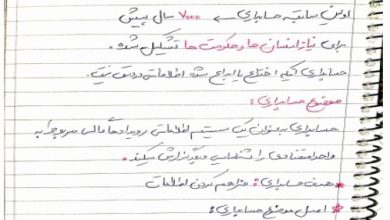 اولین سابقه حسابداری ← ۷۰۰۰ سال پیش
برای نیاز انسان ها و حکومت ها تشکیل شده.
حسابداری اینکه اختراع یا ابداع شده اطلاعاتی در دست نیست.
موضوع حسابداری:
حسابداری به عنوان یک سیستم اطلاعاتی رویدادهای مالی مربوط به
واحد اقتصادی را شناسایی و گزارش میکند.
* هدف حسابداری: فراهم کردن اطلاعات
* اصل موضوع حسابداری: